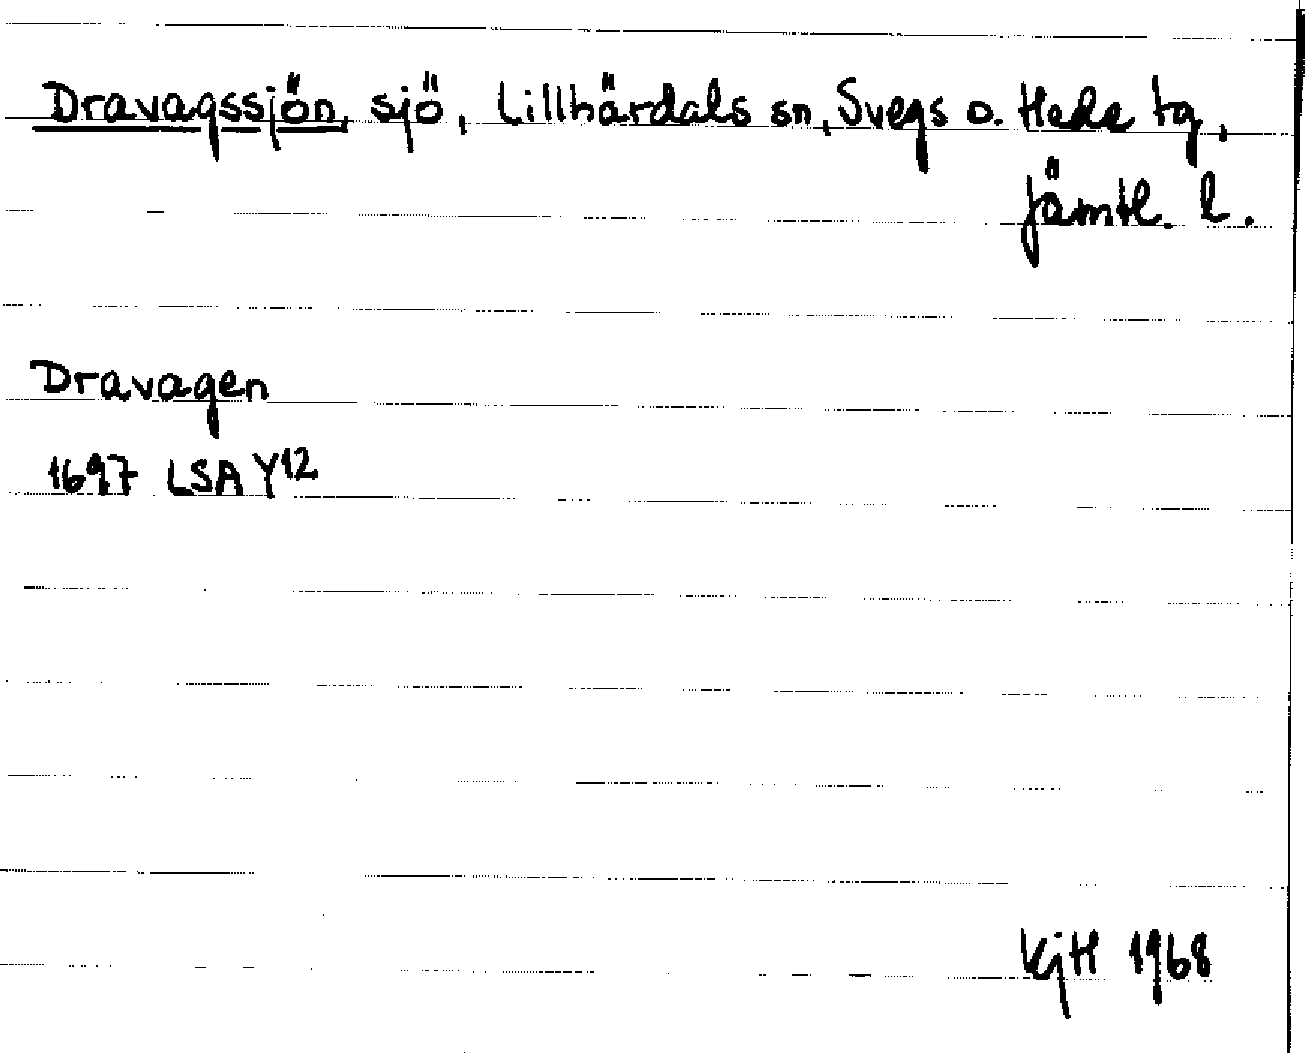 Dravagssjön, sjö, Lillhärdals sn, Svegs o. Hede tg,
Jämtl. l.
Dravagen
1697 LSA Y12
KjH 1968